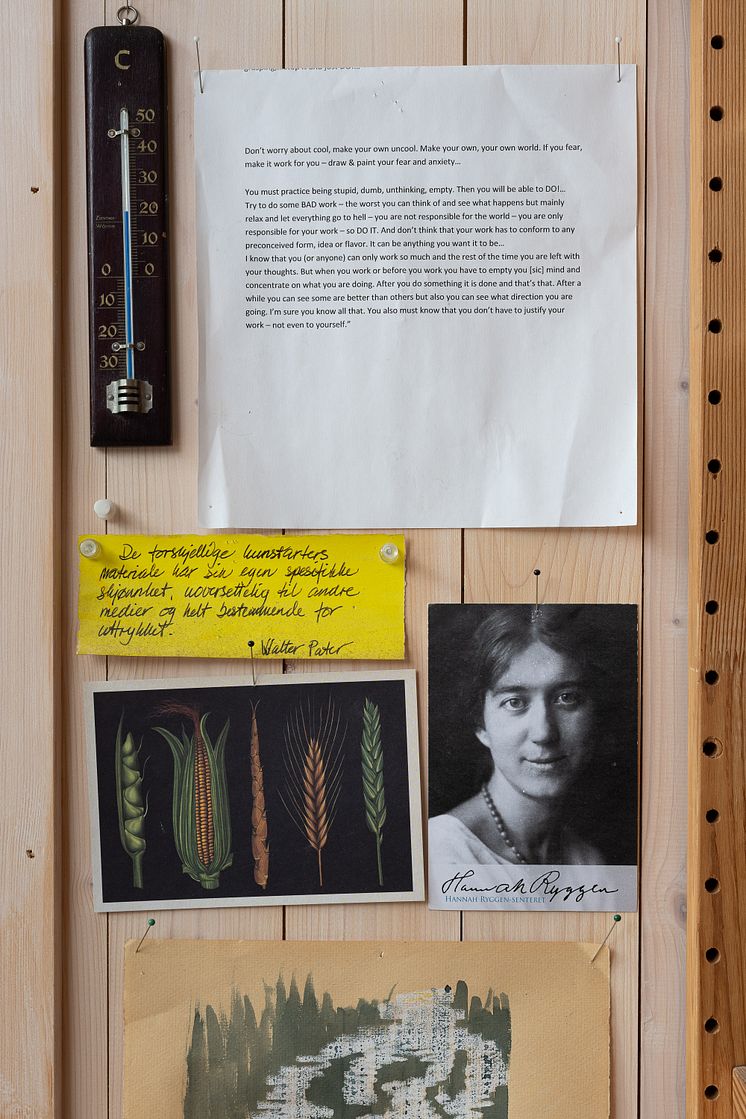 C
50
40
30
20
10
0 0
10
20
30
Don't worry about cool, make your own uncool. Make your own, your own world. If you fear,
make it work for you – draw & paint your fear and anxiety…
You must practice being stupid, dumb, unthinking, empty. Then you will be able to DO!…
Try to do some BAD work – the worst you can think of and see what happens but mainly
relax and let everything go to hell – you are not responsible for the world – you are only
responsible for your work – so DO IT. And don't think that your work has to conform to any
preconceived form, idea or flavor. It can be anything you want it to be…
I know that you (or anyone) can only work so much and the rest of the time you are left with
your thoughts. But when you work or before you work you have to empty you [sic] mind and
concentrate on what you are doing. After you do something it is done and that's that. After a
while you can see some are better than others but also you can see what direction you are
going. I'm sure you know all that. You also must know that you don't have to justify your
work – not even to yourself."
De forskjellige kunstarters
materiale har sin egen spesifikke
skjønnhet, uoversettelig til andre
medier og helt bestemmende for
uttrykket.
Walter Pater
Hannah Ryggen
HANNAH RYGGEN-SENTERET